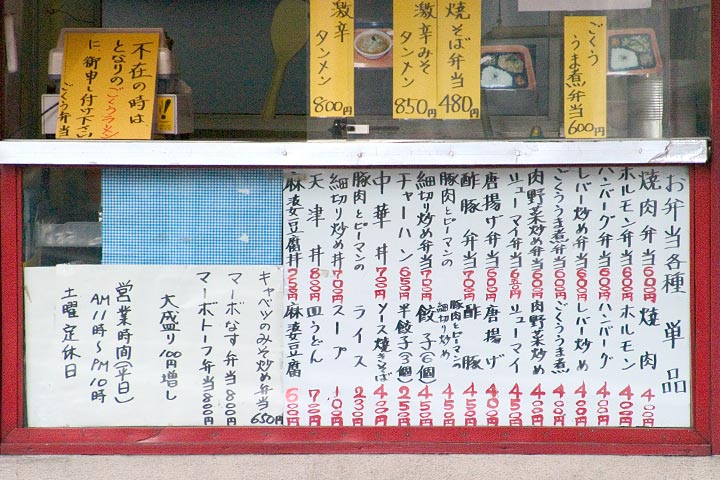 不在の時は
となりのごくうラーメン
に御申し付け下さい
ごくう弁当
激辛
タンメン
800円
激辛みそ
タンメン
850円
焼そば弁当
480円
ごくう
うま煮弁当
600円
お弁当各種 単品
焼肉弁当 600円 焼肉 400円
ホルモン弁当 600円 ホルモン 400円
ハンバーグ弁当 600円 ハンバーグ 400円
レバー炒め弁当 600円 レバー炒め 400円
ごくううま煮弁当 600円 ごくううま煮 400円
肉野菜炒め弁当 600円 肉野菜炒め 400円
シューマイ弁当 650円 シューマイ 450円
唐揚げ弁当 600円 唐揚げ 400円
酢豚弁当 700円 酢豚 450円
豚肉とピーマンの
細切り炒め弁当 700円
豚肉とピーマンの
細切り炒め 450円
餃子(6個) 450円
チャーハン 650円 半餃子(3個) 250円
中華丼 700円 ソース焼きそば 400円
豚肉とピーマンの
細切り炒め丼 700円
ライス 230円
スープ 100円
天津丼 800円 皿うどん 700円
麻婆豆腐丼 750円 麻婆豆腐 600円
キャベツのみそ炒め弁当 650円
マーボなす弁当 800円
マーボトーフ弁当 800円
大盛り100円増し
営業時間(平日)
AM11時〜PM10時
土曜定休日